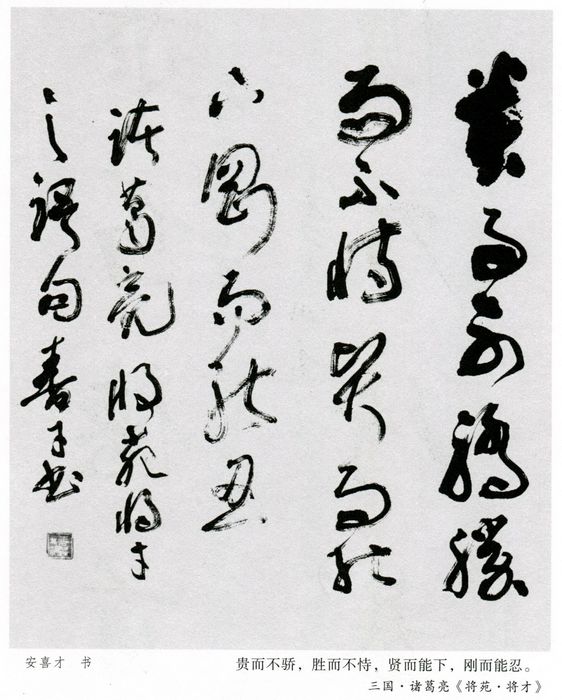 貴而不驕勝
而不恃賢而能
下剛而能忍
諸葛亮將苑將才
之語句喜才書
安喜才 书
贵而不骄，胜而不恃，贤而能下，刚而能忍。
三国·诸葛亮《将苑·将才》